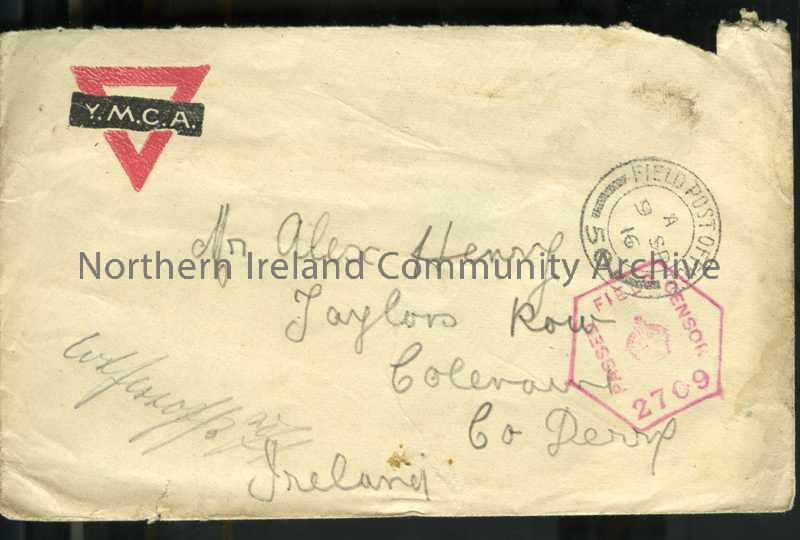 Y.M.C.A.
FIELD POST OF
A
9 SP
16
Mr Alex Henry
Northern Ireland Community Archive
Taylors Row
PASSED FIELD CENSOR
2709
Coleraine
Co Derry
Ireland